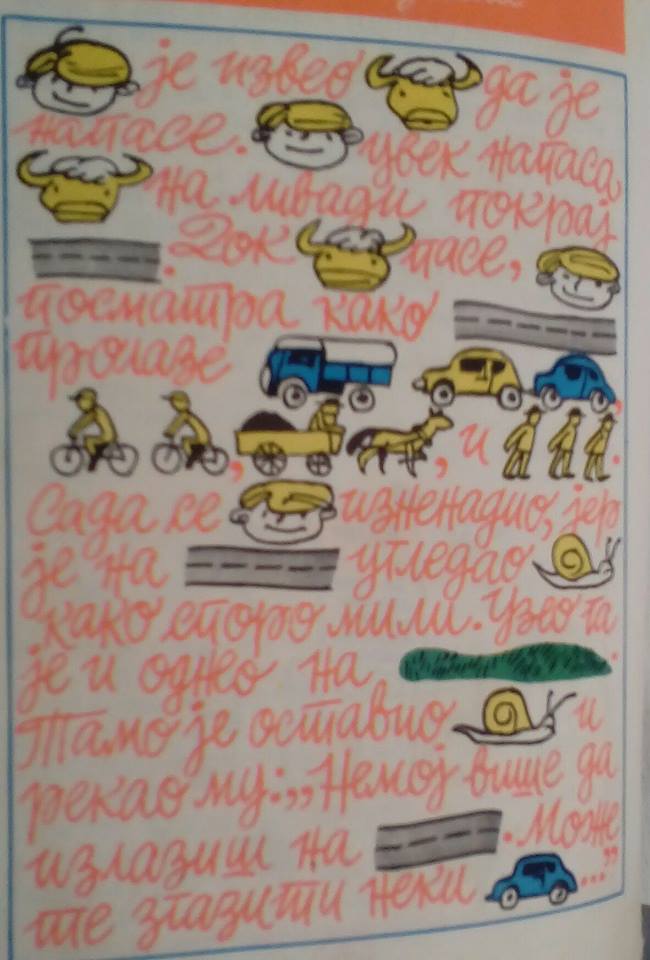 је извео да је
напасе. увек напаса
на ливади покрај
. Док пасе,
посматра како
пролазе ,
, , и .
Сада се изненадио, јер
је на угледао
како споро мили. Узео га
је и однео на .
Тамо је оставио и
рекао му: „Немој више да
излазиш на . Може
те згазити неки ..."